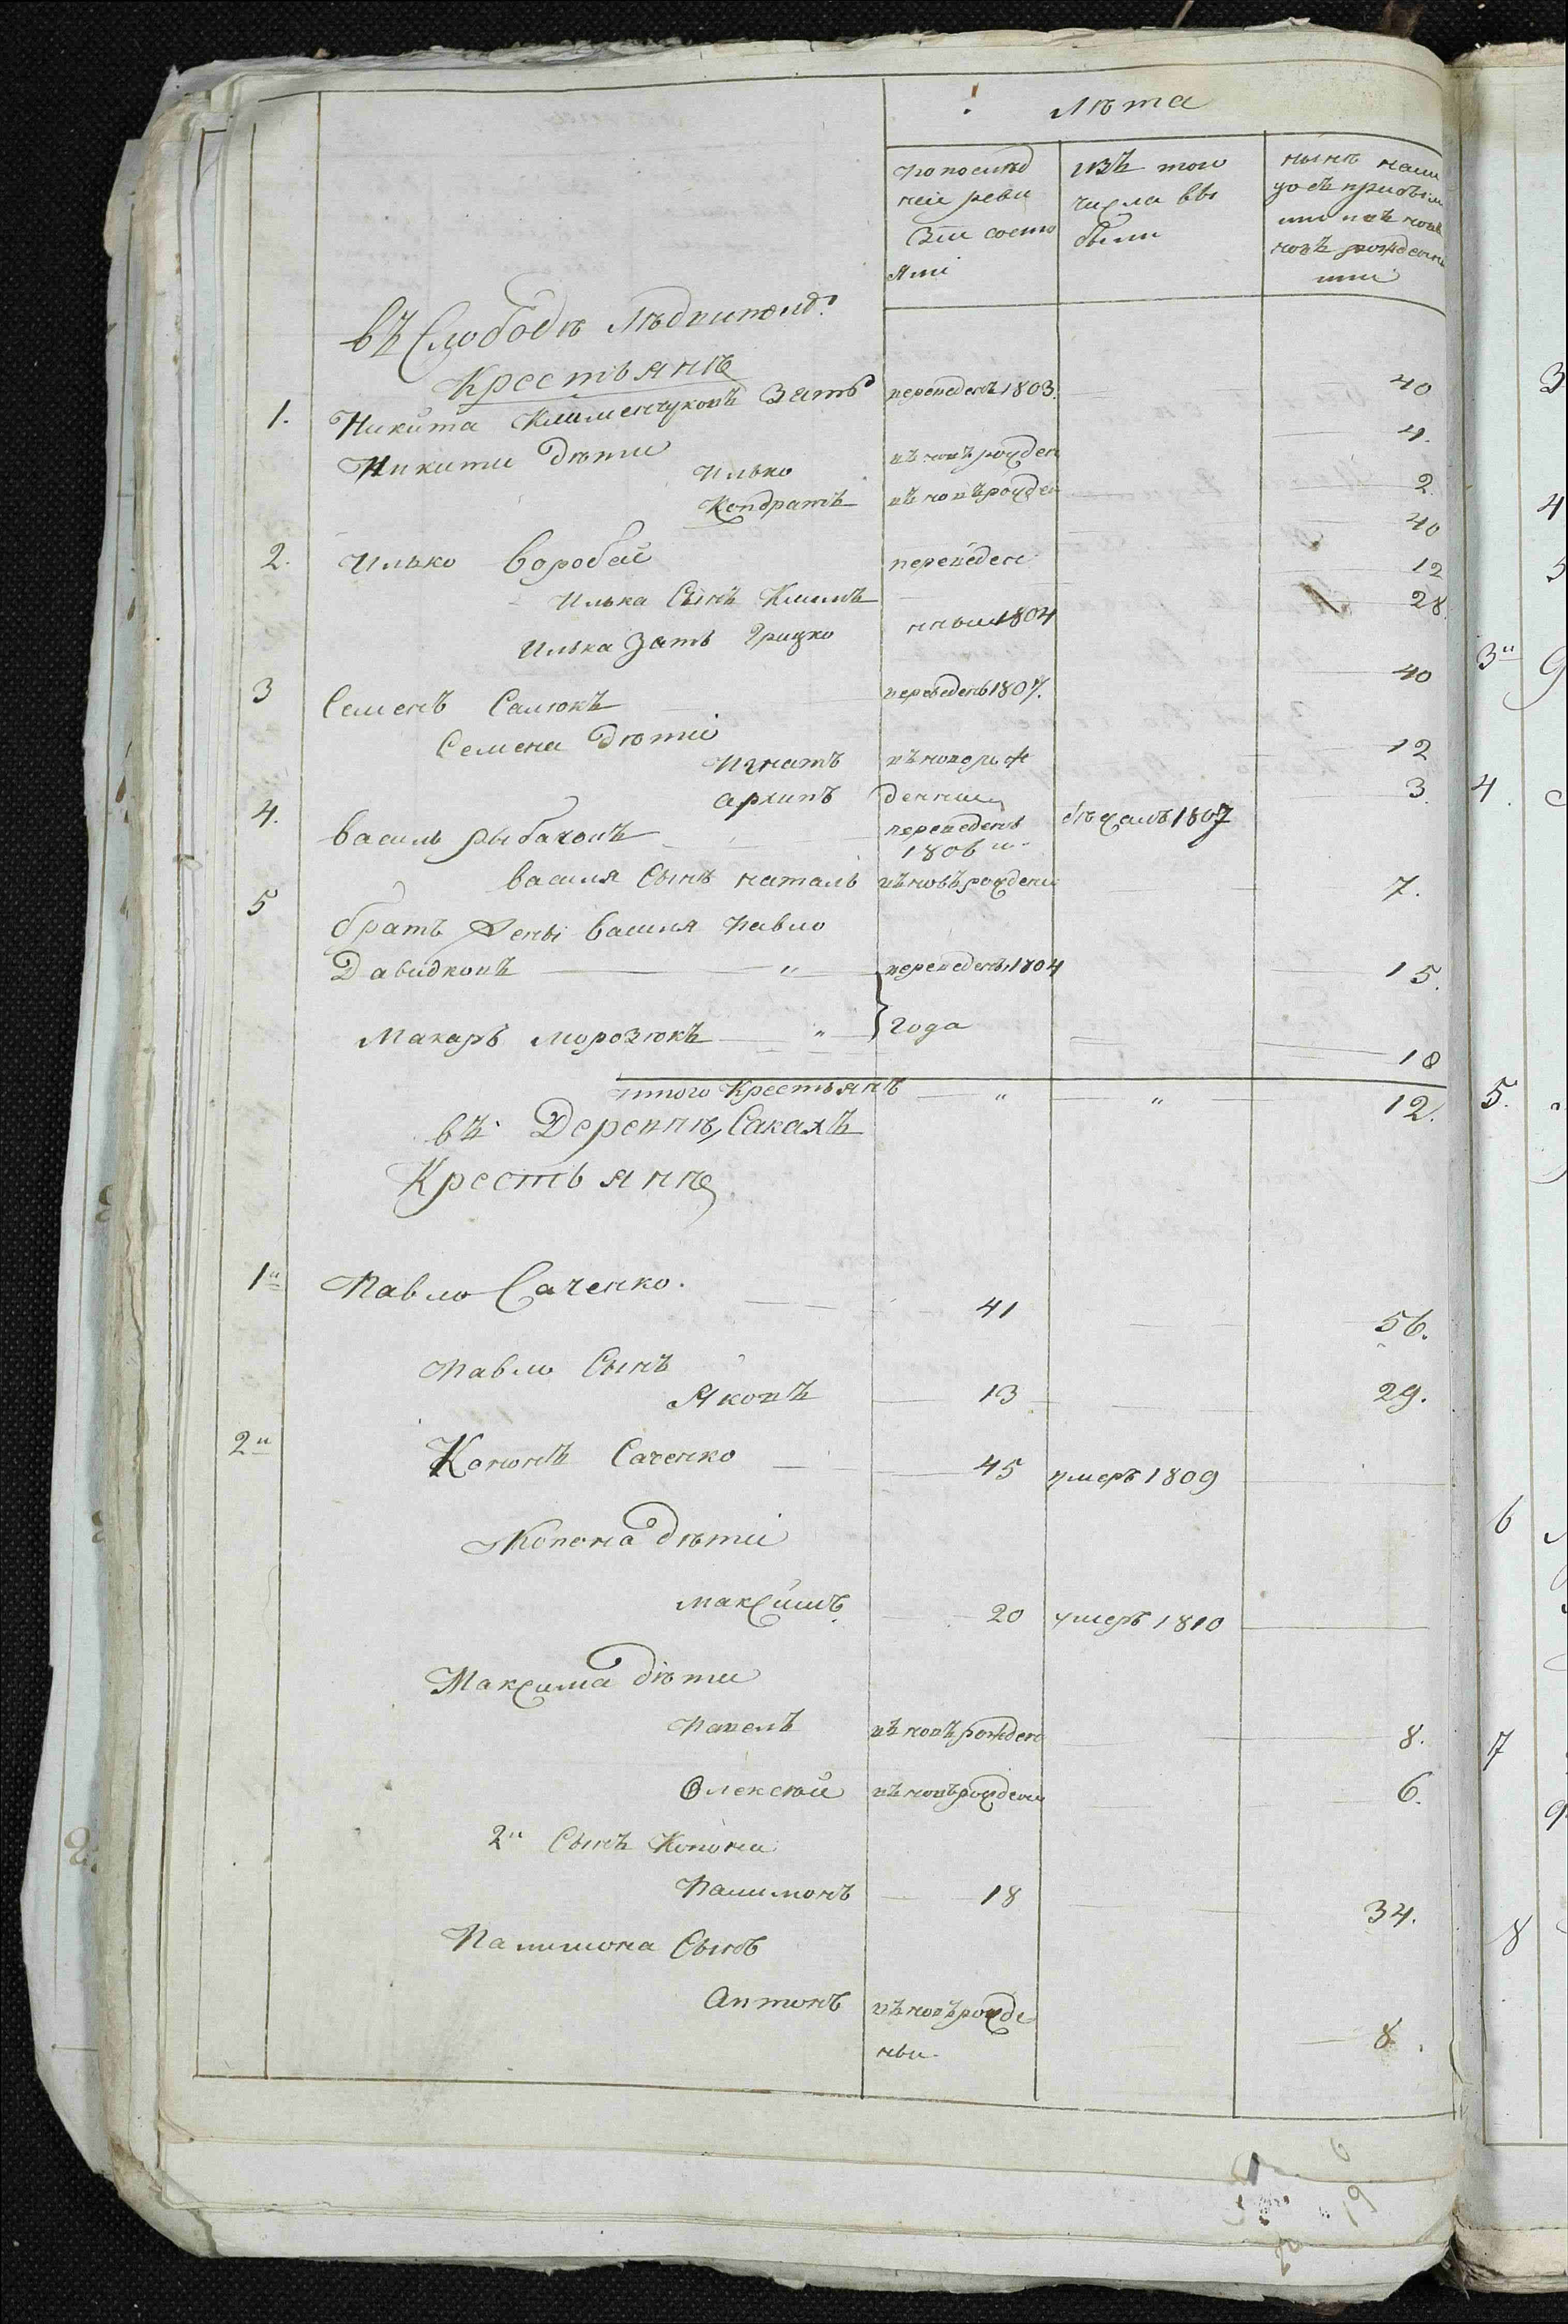 Лѣта
по послѣд
ней реви
зіи состо
яли
изъ того
числа вы
были
нынѣ нали
цо съ прибы
ми и въ новѣ рожденн
ми
въ Слободѣ
Крестьянѣ
1. Никита Клименчуковъ Зать переведенъ 1803. 40
Никити дѣти
Илько въ новѣ рожден 4.
Кондратъ въ новѣ рожден 2.
2. Илько Воробей переведен 40
Илька Сынъ Климъ 12
Илька Зать Грицко нные 1804 28.
3 Семенъ Салюкъ переведенъ 1807. 40
Семена Дѣти
Игнатъ въ ново рож 12
Архипъ денные 3.
4. Василь Рыбачокъ переведенъ бѣжалъ 1807
1806 го
Василя Сынъ Наталъ въ новѣ рожденн 7.
5 братъ Жены Василя Павло
Давидковъ " переведены 1804 15.
Макаръ Морозюкъ " года 18
итого Крестьянъ " " 12.
въ Деревнѣ Сакахъ
Крестьяне
1й Павло Саченко. 41 56.
Павло Сынъ
Яковъ 13 29.
2й Кононъ Саченко 45 умеръ 1809
Конона дѣти
Максимъ 20 умеръ 1810
Максима дѣти
Павелъ въ новѣ рожден 8.
Олексѣй въ новѣ рожденн 6.
2й Сынъ Конона
Палимонъ 18 34.
Палимона Сынъ
Антонъ въ новѣ рожде 8.
ны
3
4
5
3й
4.
5.
6
7
8